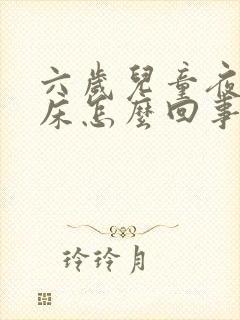 六歲兒童夜
床怎麼回事
玲玲月